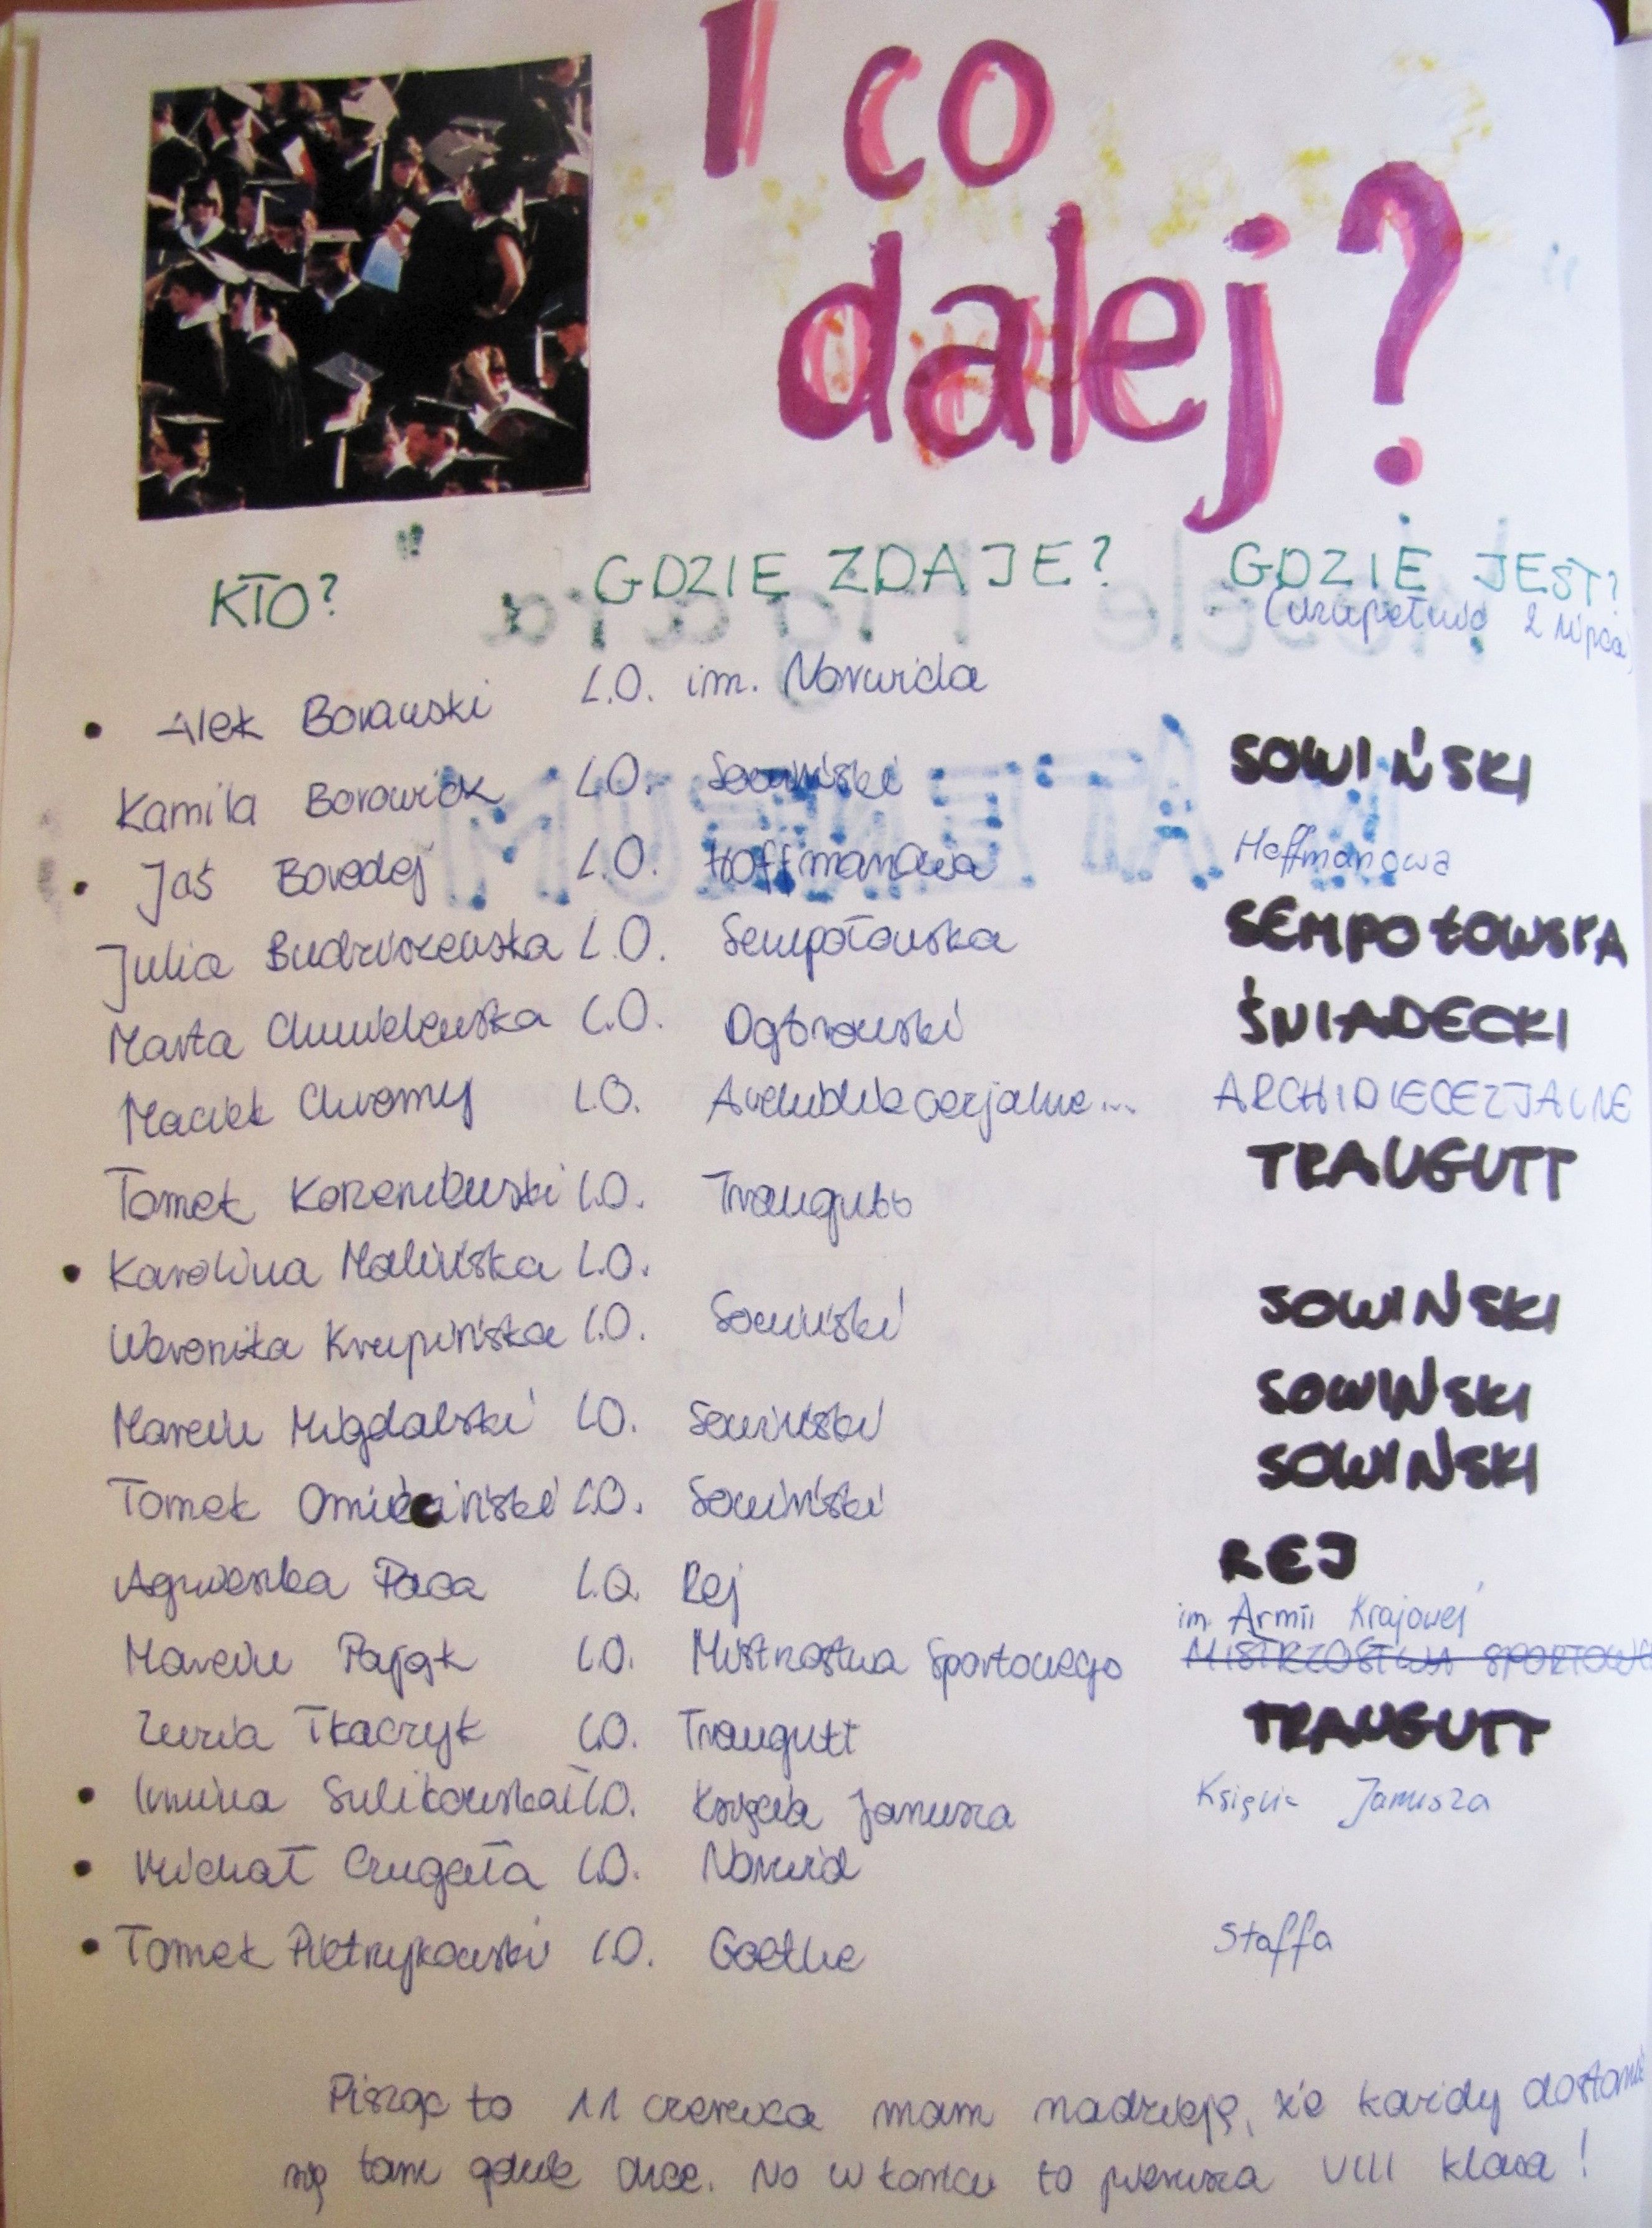 I co
dalej?
KTO? GDZIE ZDAJE? GDZIE JEST?
(uzupełnić 2 lipca)
• Alek Borawski L.O. im. Norwida
Kamila Borowick L.O. Sowiński SOWIŃSKI
• Jaś Borodej L.O. Hoffmanowa Hoffmanowa
Julia Budziszewska L.O. Sempołowska SEMPOŁOWSKA
Marta Chmielewska L.O. Dąbrowski ŚNIADECKI
Maciek Chromy L.O. Archidiecezjalne... ARCHIDIECEZJALNE
Tomek Korzeniewski L.O. Traugutt TRAUGUTT
• Karolina Malińska L.O.
Weronika Krupińska L.O. Sowiński SOWINSKI
Marcin Migdalski L.O. Sowiński SOWIŃSKI
Tomek Omieciński L.O. Sowiński SOWIŃSKI
Agnieszka Paca L.O. Rej REJ
im. Armii Krajowej
Marcin Pająk L.O. Mistrzostwa Sportowego MISTRZOSTWA
Zuzia Tkaczyk L.O. Traugutt TRAUGUTT
• Sulikowska L.O. Księcia Janusza Księcia Janusza
• Michał Czugała L.O. Norwid
• Tomek Pietrzykowski L.O. Goethe Staffa
Pisząc to 11 czerwca mam nadzieję, że każdy dostanie
się tam gdzie chce. No w końcu to pierwsza VIII klasa!